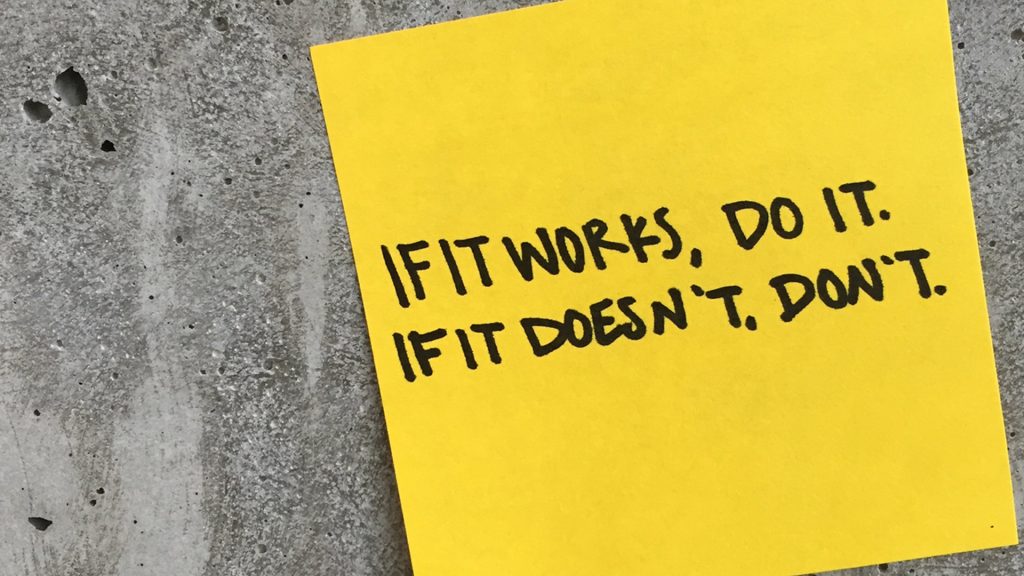 IF IT WORKS, DO IT.
IF IT DOESN'T. DON'T.